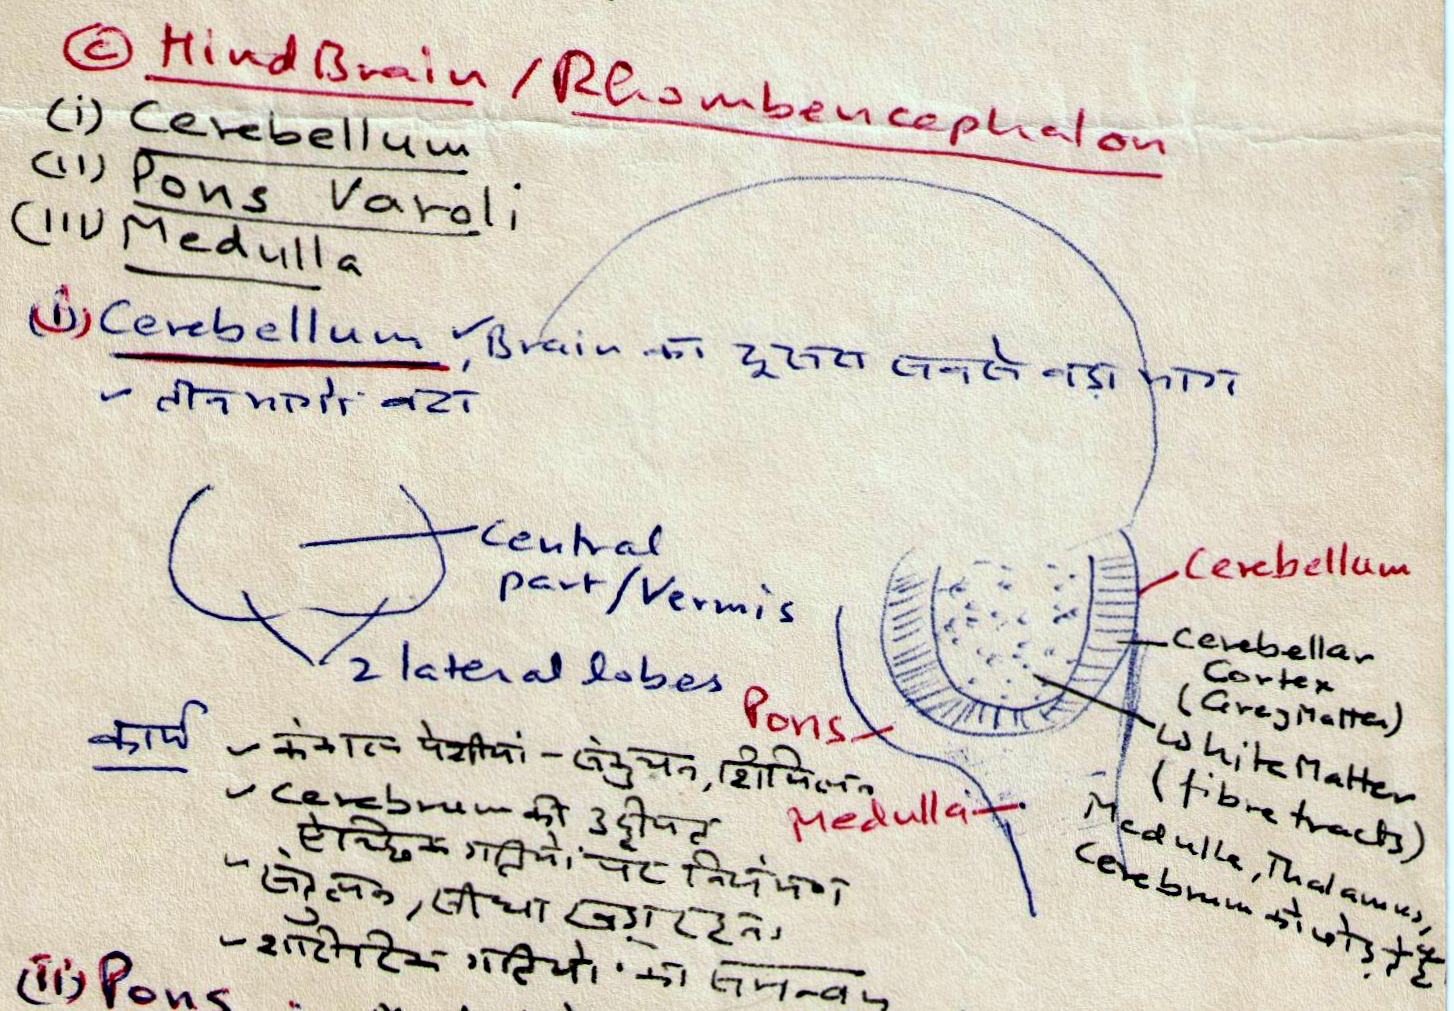 Ⓒ HindBrain / Rhombencephalon
(i) Cerebellum
(ii) Pons Varoli
(iii) Medulla
(i) Cerebellum, ✓Brain का दूसरा सबसे बड़ा भाग
✓ तीन भागों बटा
Central
part/Vermis
2 lateral lobes
Cerebellum
Cerebellar
Cortex
(GreyMatter)
WhiteMatter
(fibre tracts)
Medulla, Thalamus,
Cerebrum को जोड़ते हैं
Pons
Medulla
कार्य ✓ कंकाल पेशीयां - संकुचन, शिथिलन
✓ Cerebrum की उद्दीपन
ऐच्छिक गतियों पर नियंत्रण
✓ संतुलन, सीधा खड़ा रहना
✓ शारीरिक गतियों का समन्वय
(ii) Pons